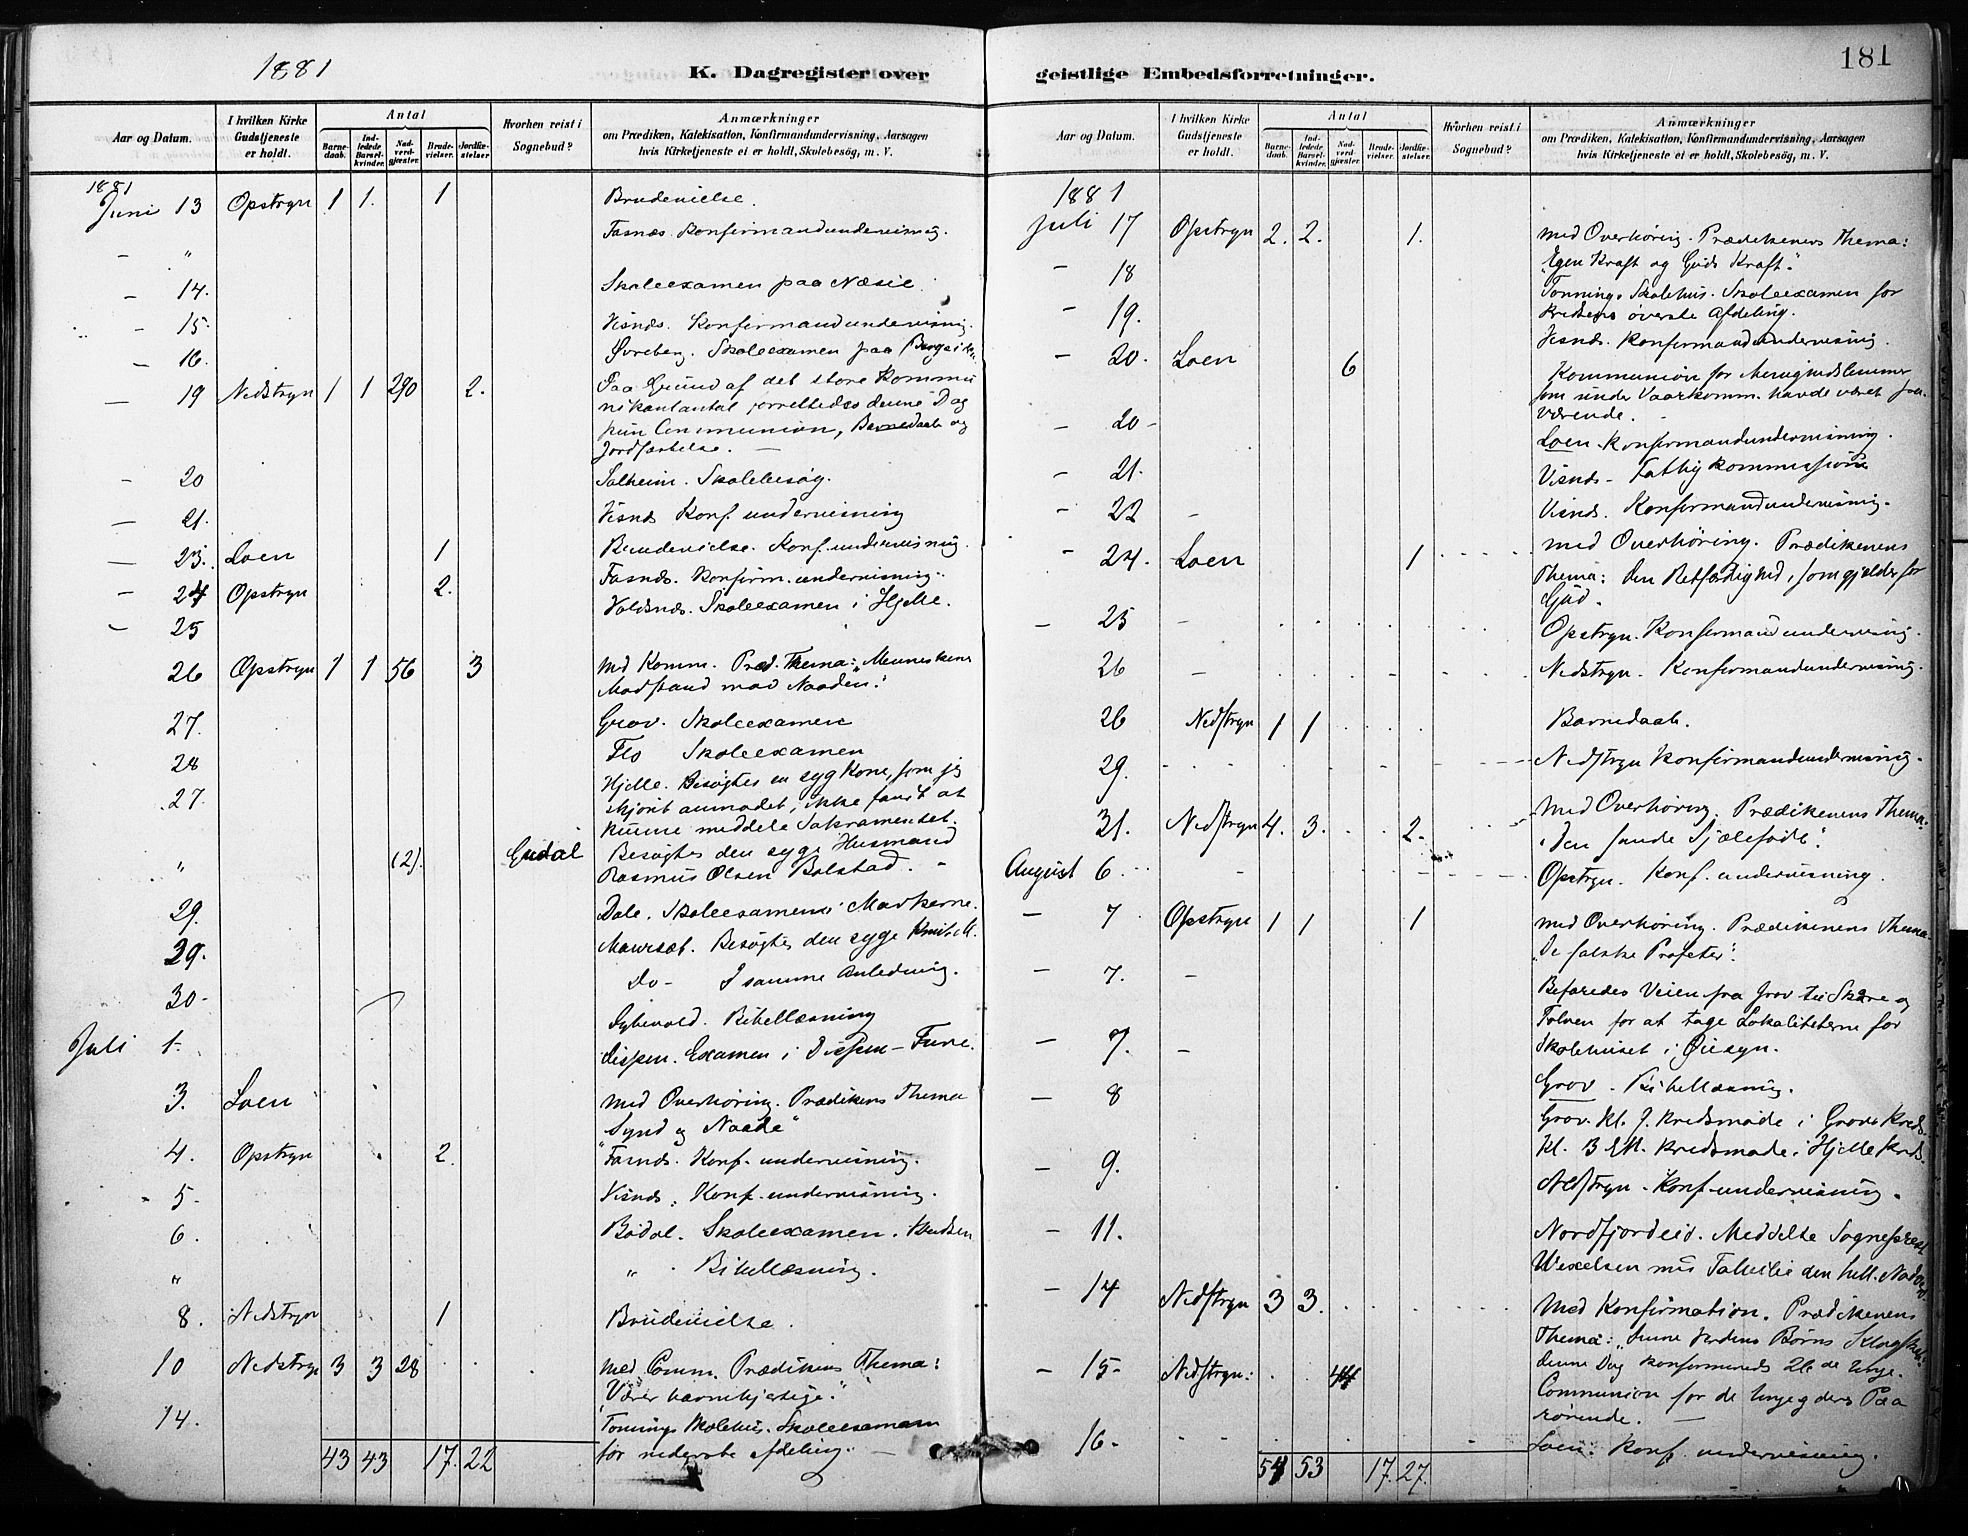 1881
K. Dagregister over
Aar og Datum.
I hvilken Kirke Gudstjeneste er holdt.
Antal
Barnedaab.
Indledede Barselkvinder.
Nadverdgjæster.
Brudevielser.
Jordfæstelser.
Hvorhen reist i Sognebud?
Anmærkninger
om Prædiken, Katekisation, Konfirmandundervisning, Aarsagen
hvis Kirketjeneste ei er holdt, Skolebesög, m. V.
1881
Juni 13 Opstryn 1 1. 1 Brudevielse.
— " Fasnæs. Konfirmandundervisning.
— 14. Skoleexamen paa Næsie.
— 15. Visnæs. Konfirmandundervisning.
— 16. Øvreberg. Skoleexamen paa
— 19 Nedstryn 1 1 290 2. Paa Grund af det store Kommu
nikantantal forrettedes denne Dag
kun Communion, Barnedaab og
Jordfæstelse. —
— 20 Solheim. Skolebesøg.
— 21. Visnæs Konf. undervisning
— 23. Loen 1 Brudevielse. Konf. undervisning.
— 24 Opstryn 2. Fasnæs. Konfirm. undervisning.
— 25 Valdsnæs. Skoleexamen i Hjelle.
26 Opstryn 1 1 56 3 Med Komm. Præd. Thema: "Menneskene
Modstand mod Naaden."
27. Grov. Skoleexamen
28 Flo Skoleexamen
27. Hjelle. Besøgtes en syg Kone, som jeg
skjönt anmodet, ikke fandt at
kunne meddele Sakramentet.
" (2). Erdal Besøgtes den syge Husmand
Rasmus Olsen Bolstad. -
29. Dale. Skoleexamen i Markerne.
29. Maursæt. Besøgtes den syge
30- Do - I samme Anledning.
Bibellæsning
Juli 1. Examen i
3. Loen Med Overhøring. Prædikens Thema
"Synd og Naade"
4. Opstryn 2. Fasnæs. Konf. undervisning.
5. Visnæs. Konf. undervisning.
6. Bødal. Skoleexamen.
" " Bibellæsning.
8. Nedstryn 1 Brudevielse.
10 Nedstryn 3 3 28 Med Comm. Prædikens Thema:
"Værer barmhjertige."
14. Tonnings Skolehus. Skoleexamen
for nederste Afdeling. —
43 43 17. 22
181
geistlige Embedsforretninger.
Aar og Datum.
I hvilken Kirke Gudstjeneste er holdt.
Antal
Barnedaab.
Indledede Barselkvinder.
Nadverdgjæster.
Brudevielser.
Jordfæstelser.
Hvorhen reist i Sognebud?
Anmærkninger
om Prædiken, Katekisation, Konfirmandundervisning, Aarsagen
hvis Kirketjeneste ei er holdt, Skolebesög, m. V.
1881
Juli 17 Opstryn 2. 2. 1. Med Overhøring. Prædikenens Thema:
"Egen Kraft og Guds Kraft."
— 18 Tonnings Skolehus. Skoleexamen for
Kredsens øverste Afdeling.
— 19. Visnæs. Konfirmandundervisning.
— 20. Loen 6 Kommunion for Menighedslemmer
som under Vaarkomm. havde været fra-
værende.
— 20 - Loen. Konfirmandundervisning.
— 21. Visnæs - Fattigkommission
— 22 - Visnæs. Konfirmandundervisning.
— 24. Loen 1 Med Overhøring. Prædikenens
Thema: Den Retfærdighed, som gjælder for
Gud.
— 25 - Opstryn. Konfirmandundervisning.
26 - Nedstryn. Konfirmandundervisning.
26 Nedstryn 1 1 Barnedaab.
29. Nedstryn Konfirmandundervisning.
31. Nedstryn 4. 3. 2. Med Overhøring. Prædikenens Thema:
"Den sande Sjæleføde".
August 6 - Opstryn. Konf. undervisning.
— 7 Opstryn 1 1 1 Med Overhøring. Prædikenens Thema.
"De falske Profeter".
— 7. - Befaredes Veien fra Grov til Skåre og
for at tage Lokaliteterne for
Skolehuset i Øiesyn.
— 7. - Grov. Bibellæsning.
— 8 Grov. Kl. 7. Kredsmøde i Grovs Kreds.
Kl. 3 EM. Kredsmøde i Hjelle Kreds.
— 9. Nedstryn. Konf. undervisning.
— 11. Nordfjordeid. Meddelte Sognepræst
Wexelsen med Familie den hell. Nadv.
— 14 Nedstryn 3 3. Med Konfirmation. Prædikenens
Thema: "Denne Verdens Børns Klogskab."
Denne Dag konfirmeredes 26 de Unge.
— 15 - Nedstryn: 44 Communion for de Unge og deres Paa
rørende. —
16 - Loen. Konf. undervisning.
54 53 17. 27.